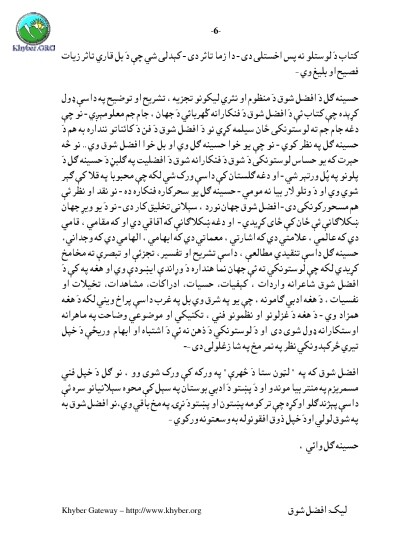 -6-
Khyber.ORG
کتاب دَ لوستلو نه پس اخستلی دی - دا زما تاثر دی - کېدلی شي چې دَ بل قاري تاثر زیات
فصیح او بلیغ وي -
حسینه ګل دَ افضل شوق دَ منظوم او نثري لیکونو تجزیه ، تشریح او توضیح په داسې ډول
کړېده چې کتاب ئې دَ افضل شوق دَ فنکارانه ګهرپائې دَ جهان ، جام جم معلومېږي - نو چې
دغه جام جم ته لوستونکی ځان سیلمه کړي نو دَ افضل شوق دَ فن دَ کائناتو ننداره به هم دَ
حسینه ګل په نظر کوي - نو چې یو خوا حسینه ګل وي او بل خوا افضل شوق وي .. نو څه
حیرت که یو حساس لوستونکی دَ شوق دَ فنکارانه شوق دَ افضلیت په ګلبڼ دَ حسینه ګل دَ
پلونو په پُل ورتېر شي - او دغه ګلستان کې داسې ورک شي لکه چې محبوبا په قلا کې ګېر
شوي وي او دَ وتلو لار بیا نه مومي - حسینه ګل یو سحرکاره فنکاره ده - نو نقد او نظر ئې
هم مسحورکونکی دی - افضل شوق جهان نورد ، سېلانی تخلیق کار دی - نو دَ یو ویړ جهان
ښکلاګانې ئې ځان کې ځای کړېدي - او دغه ښکلاګانې که آفاقي دي او که مقامي ، قامي
دي که عالمي ، علامتي دي که اشارتي ، معماتي دي که ابهامي ، الهامي دي که وجداني،
حسینه ګل داسې تنقیدي مطالعې ، داسې تشریح او تفسیر ، تجزئې او تبصرې ته مخامخ
کړېدي لکه چې لوستونکي ته ئې جهان نما هنداره دَ وړاندې ایښودې وي او هغه په کې دَ
افضل شوق شاعرانه واردات ، کیفیات، حسیات، ادراکات، مشاهدات، تخیلات او
نفسیات ، دَ هغه ادبي ګامونه ، چې یو په شرق وي بل په غرب داسې پراخ ویني لکه دَ هغه
همزاد وي - دَ هغه دَ غزلونو او نظمونو فني ، تکنیکي او موضوعي وضاحت په ماهرانه
او ستکارانه ډول شوی دی او دَ لوستونکي دَ ذهن نه ئې دَ اشتباه او ابهام وریځې دَ خپل
تېري څرګندونکي نظر په نمر مخ په شا زغلولی دی --
افضل شوق که په " لټون ستا دَ څهرې " په ورکه کې ورک شوی وو ، نو ګل دَ خپل فني
مسمریزم په منتر بیا موندو او دَ پښتو دَ ادبي بوستان په سېل کې محوه سېلانیانو سره ئې
داسې پېژندګلو اوکړه چې تر کومه پښتون او پښتو دَ نړۍ په مخ باقي وي، نو افضل شوق به
په شوق لولي او دَ خپل ذوق افقونو له به وسعتونه ورکوي -
حسینه ګل وائي ،
Khyber Gateway – http://www.khyber.org
لیک: افضل شوق